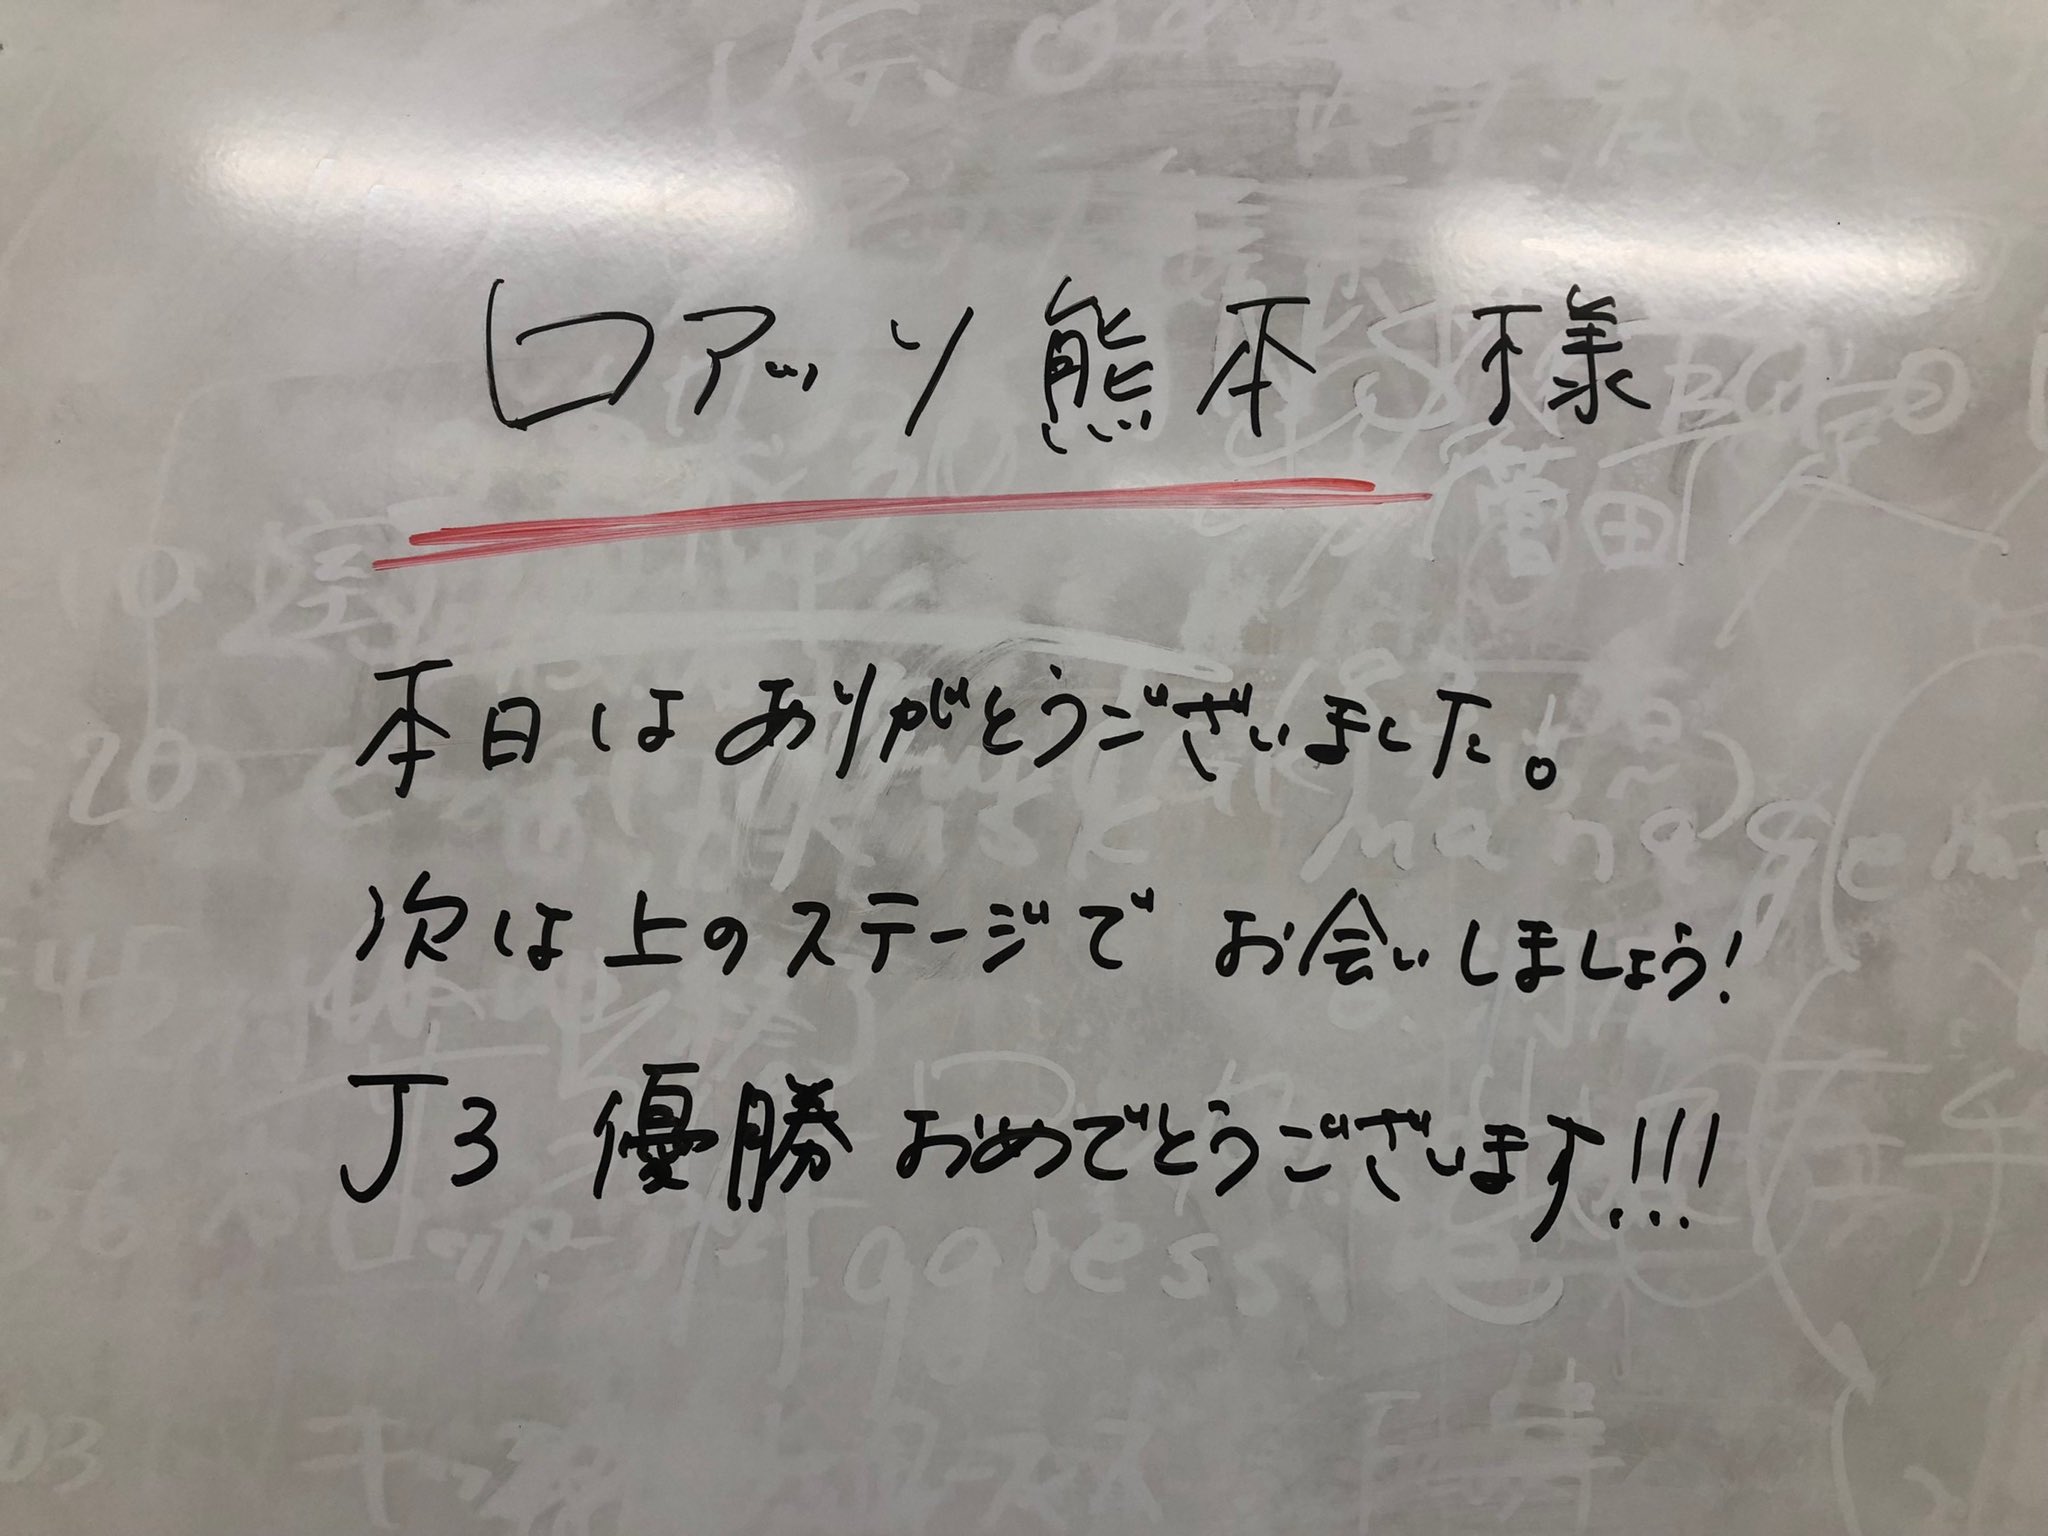 ロアッソ熊本様
本日はありがとうございました。
次は上のステージでお会いしましょう!
J3 優勝 おめでとうございます!!!